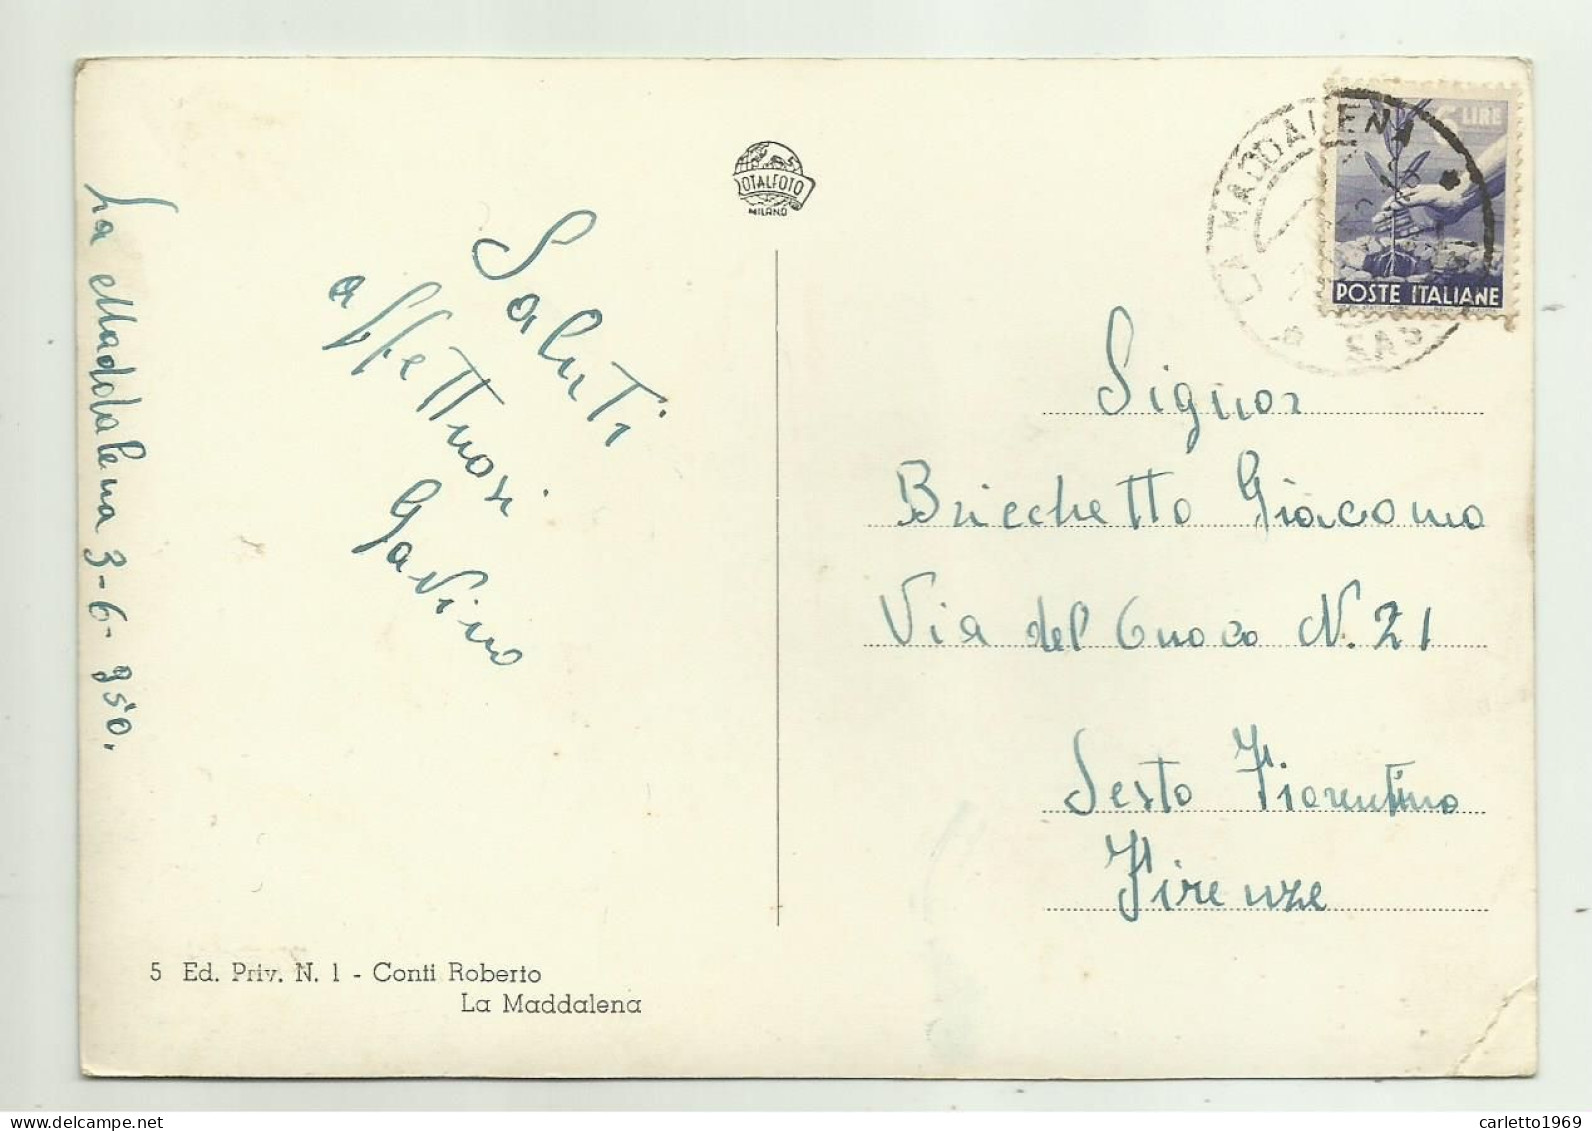 La Maddalena 3-6-950.
Saluti
affettuosi
Gavino
OTALFOTO
MILANO
LA MADDALENA
SAS
6 LIRE
POSTE ITALIANE
Signor
Bricchetto Giacomo
Via del Cuoco N. 21
Sesto Fiorentino
Firenze
5 Ed. Priv. N. 1 - Conti Roberto
La Maddalena
carletto1969